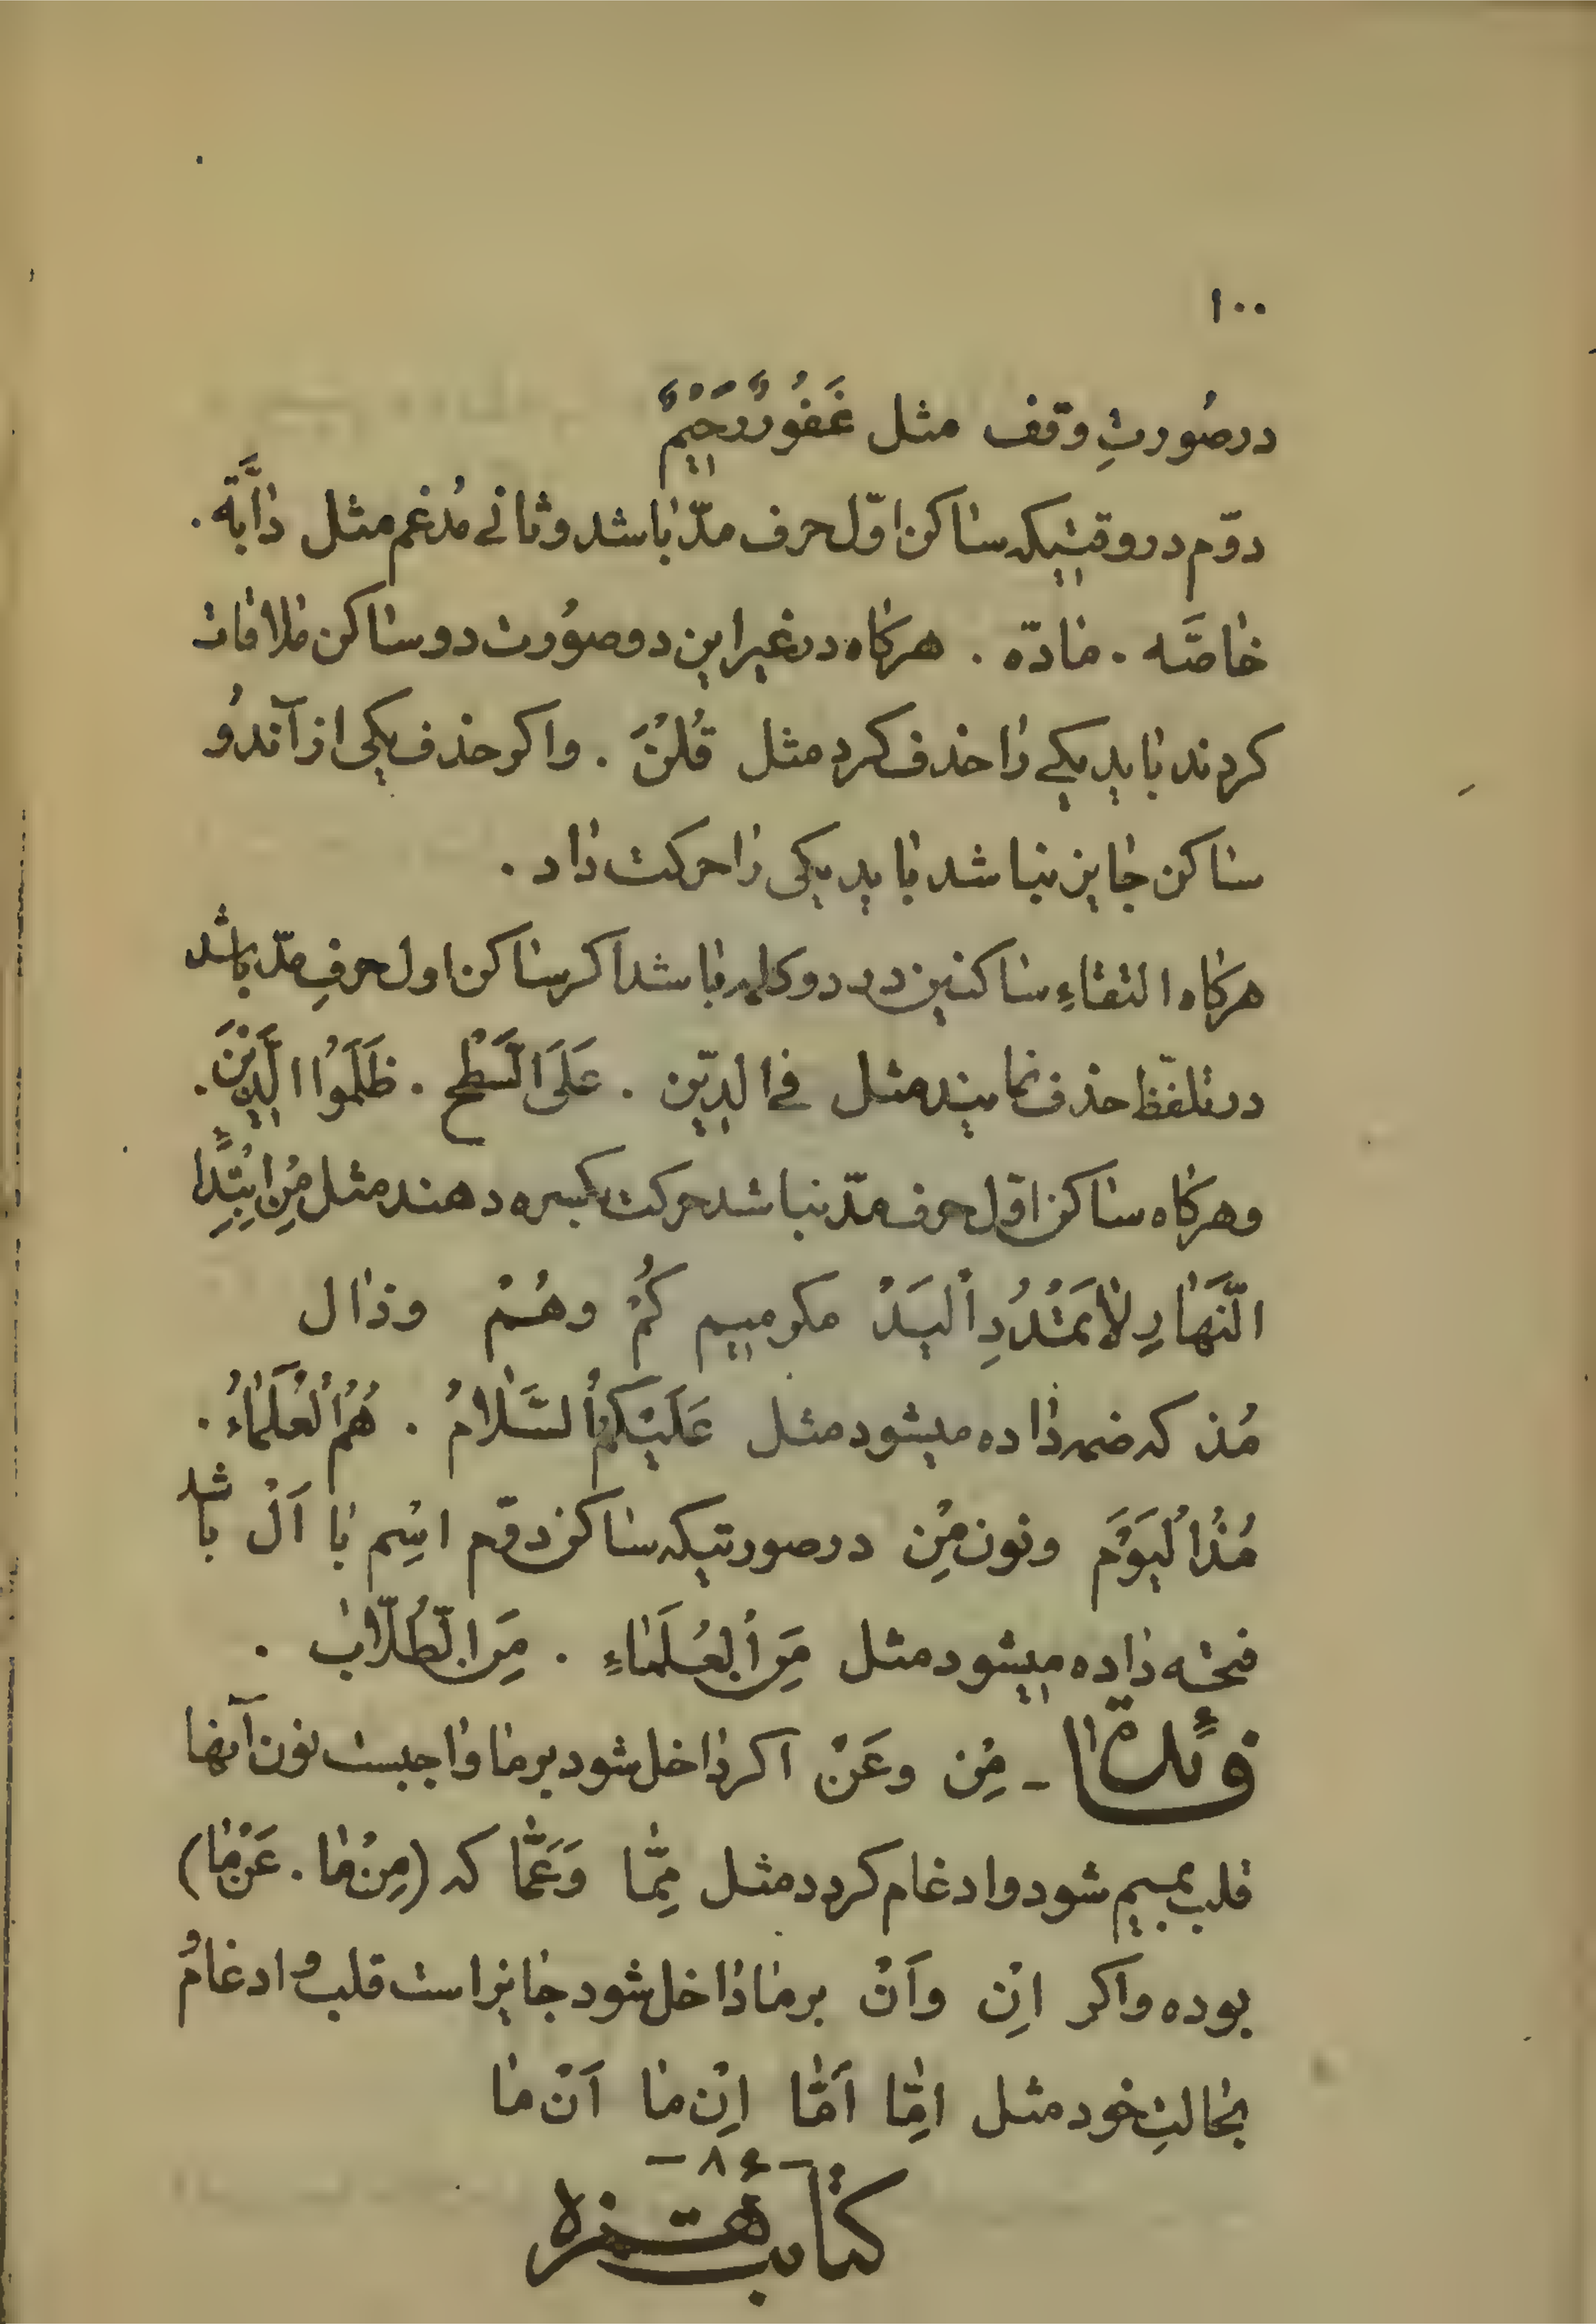 ۱۰۰
در صُورتِ وقف مثل غَفُورٌ رَحیمٌ
دوّم در وقتیکه ساکن اوّل حرف مدّ باشد و ثانی مُدغم مثل دٰابَّة .
خاصَّه . مادّه . هرکاه در غیر این دو صوُرت دو ساکن ملاقات
کردند باید یکی را حذف کرد مثل قُلْنَ . واکر حذف یکی از آندوُ
ساکن جایز نباشد باید یکی را حرکت داد .
هرکاه التقاءِ ساکنین در دو کلمه باشد اکر ساکن اول حرفِ مدّ باشد
در تلفّظ حذف نمایند مثل فی الدّین . عَلَی السَّطْح . ظَلَمُوا الَّذینَ .
و هرکاه ساکن اوّل حرف مدّ نباشد حرکت بکسره دهند مثل مِنِ ابْتِدٰاءِ
النَّهٰارِ لاٰتَمْدُدِ اْلیَدْ مکر میم کُمْ وهُمْ وذال
مُذ که ضمه داده میشود مثل عَلَیْکُمُ السَّلاٰمُ . هُمُ اْلعُلَمٰاءُ .
مُذُ اْلیَوْمَ ونون مِنْ در صورتیکه ساکن دوّم اسِم با اَلْ باشد
فتحه داده میشود مثل مِنَ اْلعُلَمٰاءِ . مِنَ الطُّلّابْ .
فائدة - مِنْ وعَنْ اکر داخل شود بر ما واجبست نون آنها
قلب بمیم شود وادغام کردد مثل مِمّٰا وَعَمّٰا که (مِنْ مٰا . عَنْ مٰا)
بوده واکر اِنْ واَنْ بر ما داخل شود جایز است قلب و ادغام و
بحالتِ خود مثل اِمّٰا اَمّٰا اِنْ ما اَنْ ما
-۸۶-
کتابت همزه